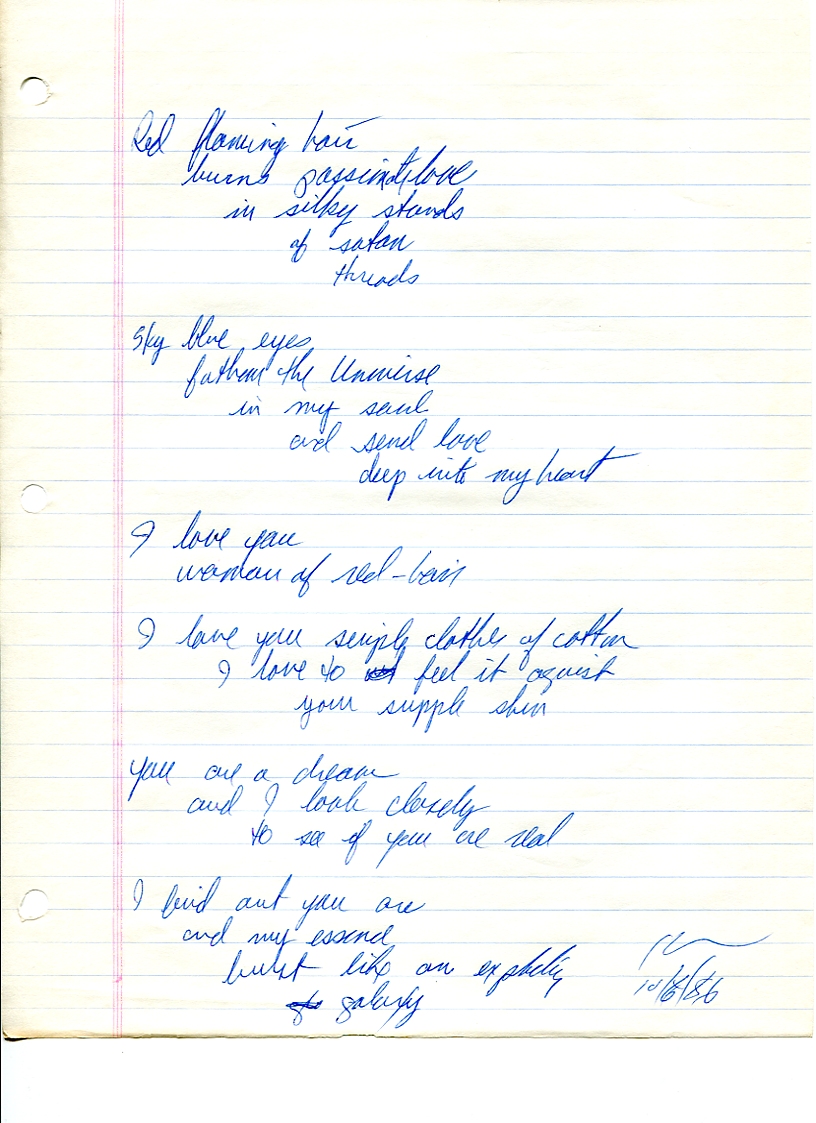 Red flaming hair
burns passionate love
in silky stands
of satan
threads
Sky blue eyes
fathom the Universe
in my soul
and send love
deep into my heart
I love you
woman of red-hair
I love you simple clothes of cotton
I love to feel it against
your supple skin
You are a dream
and I look closely
to see if you are real
I find out you are
and my essence
burst like an exploding
galaxy
10/6/86